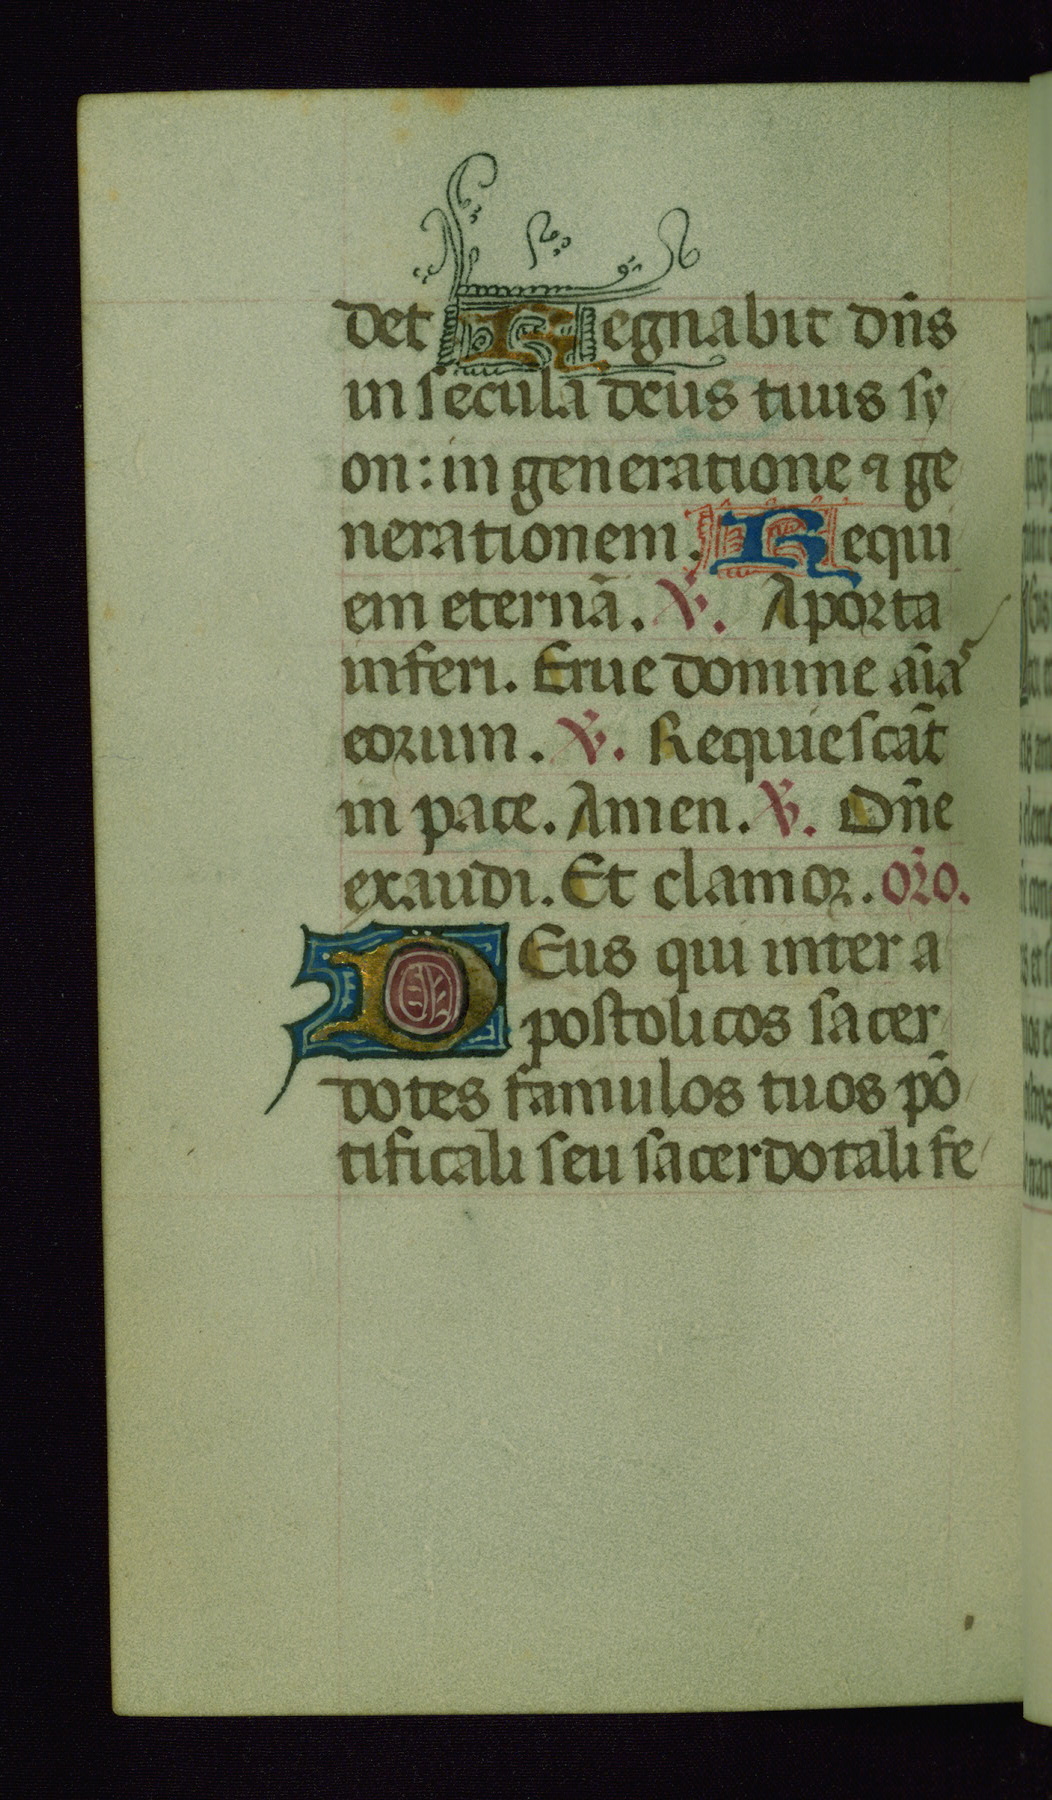 det Regnabit dn̄s
in secula deus tuus sy
on: in generatione ⁊ ge
nerationem. Requi
em eternā. V̄. A porta
inferi. Erue domine aīas
eorum. V̄. Requiescāt
in pace. Amen. V̄. Dn̄e
exaudi. Et clamor. Or̄o.
Deus qui inter a
postolicos sacer
dotes famulos tuos pō
tificali seu sacerdotali fe